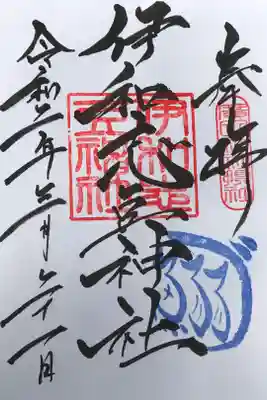 奉拝
伊和志豆神社
令和二年三月二十一日
伊和志
豆神社